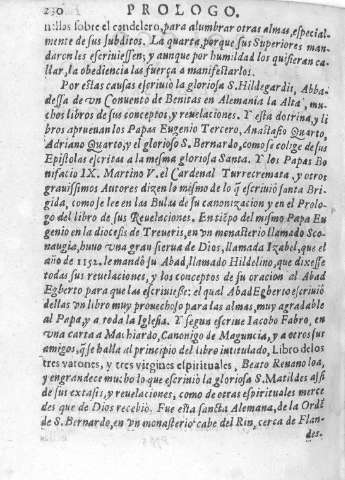 230 PROLOGO.
nerlas sobre el candelero, para alumbrar otras almas, especial-
mente de sus subditos. La quarta, porque sus Superiores man-
daron les escriuiessen; y aunque por humildad los quisieran ca-
llar, la obediencia las fuerça a manifestarlos.
Por estas causas escriuio la gloriosa S. Hildegardis, Abba-
dessa de vn Conuento de Benitas en Alemania la Alta, mu-
chos libros de sus conceptos, y reuelaciones. Y esta dotrina, y li
bros aprueuan los Papas Eugenio Tercero, Anastasio Quarto,
Adriano Quarto, y el glorioso S. Bernardo, como se colige de sus
Epistolas escritas a la mesma gloriosa Santa. Y los Papas Bo
nifacio IX. Martino V. el Cardenal Turrecremata, y otros
grauissimos Autores dizen lo mismo de lo q̃ escriuiò santa Bri
gida, como se lee en las Bulas de su canonizacion y en el Prolo
go del libro de sus Reuelaciones. En tiẽpo del mismo Papa Eu
genio en la diocesis de Treueris, en vn monasterio llamado Sco
naugia, huuo vna gran sierua de Dios, llamada Izabel, que el
año de 1152. le mandò su Abad, llamado Hildelino, que dixesse
todas sus reuelaciones, y los conceptos de su oracion al Abad
Egberto para que las escriuiesse: el qual Abad Egberto escriuiò
dellas vn libro muy prouechoso para las almas, muy agradable
al Papa, y a toda la Iglesia. Y segun escriue Iacobo Fabro, en
vna carta a Machiardo, Canonigo de Maguncia, y a otros sus
amigos, q̃ se halla al principio del libro intitulado, Libro de los
tres varones, y tres virgines espirituales, Beato Renano loa,
y engrandece mucho lo que escriuiò la gloriosa S. Matildes assi
de sus extasis, y reuelaciones, como de otras espirituales merce
des que de Dios recebiò. Fue esta sancta Alemana, de la Ordẽ
de S. Bernardo, en vn monasterio cabe del Rin, cerca de Flan-
des.